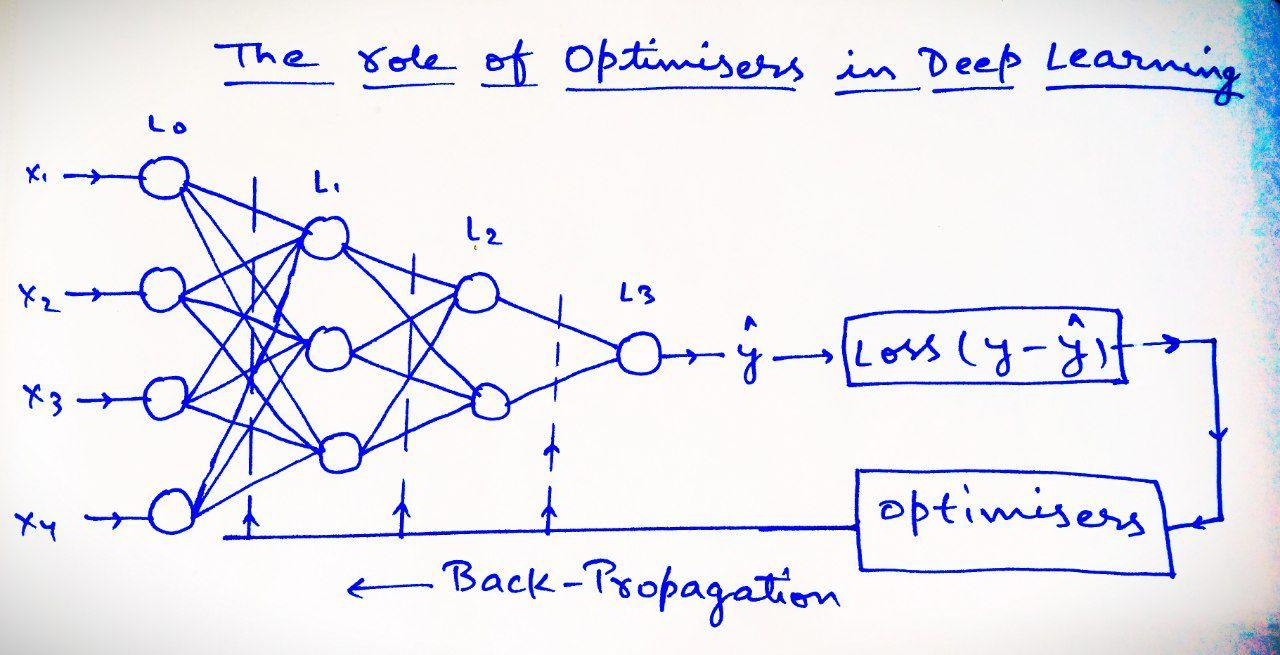 The role of Optimisers in Deep Learning
L0
L1
L2
L3
x1
x2
x3
x4
ŷ
Loss (y-ŷ)
optimisers
Back-Propagation